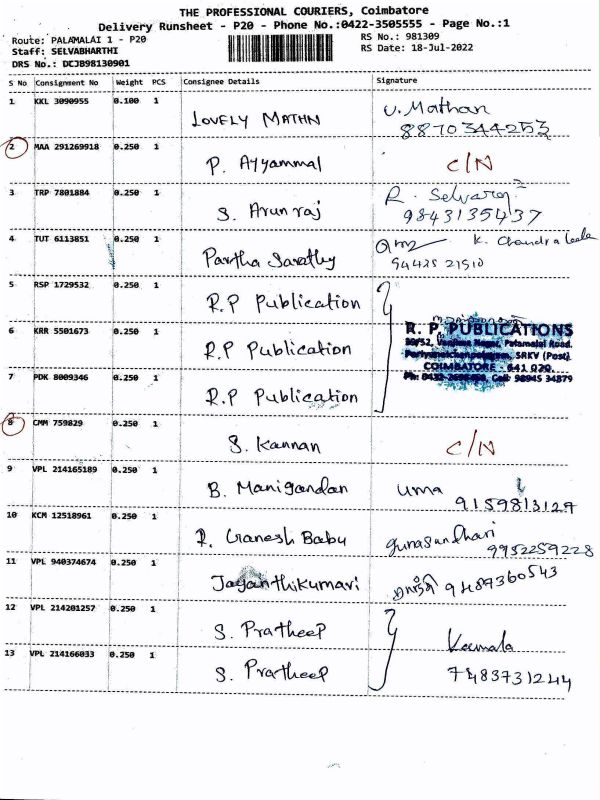 THE PROFESSIONAL COURIERS, Coimbatore
Delivery Runsheet - P20 - Phone No.:0422-3505555 - Page No.:1
Route: PALAMALAI 1 - P20
RS No.: 981309
Staff: SELVABHARTHI
RS Date: 18-Jul-2022
DRS No.: DCJB98130901
S No Consignment No Weight PCS Consignee Details Signature
1 KKL 3090955 0.100 1 LOVELY MATHN U. Mathan
8870344253
2 MAA 291269918 0.250 1 P. Ayyammal C/N
3 TRP 7801884 0.250 1 S. Arun raj R. Selvaraj
9843135437
4 TUT 6113851 0.250 1 Partha Sarathy K. Chandraleela
94425 21510
5 RSP 1729532 0.250 1 R.P Publication
6 KRR 5501673 0.250 1 R.P Publication
R. P. PUBLICATIONS
Nagar, Palamalai Road.
SRKV (Post)
COIMBATORE - 641 020.
Cell: 98945 34879
7 PDK 8009346 0.250 1 R.P Publication
8 CMM 759829 0.250 1 S. Kannan C/N
9 VPL 214165189 0.250 1 B. Manigandan Uma 9159813127
10 KCM 12518961 0.250 1 R. Ganesh Babu gunasundhari
9952259228
11 VPL 940374674 0.250 1 Jayanthikumari 9489360543
12 VPL 214201257 0.250 1 S. Pratheep
13 VPL 214166033 0.250 1 S. Pratheep
7483731244